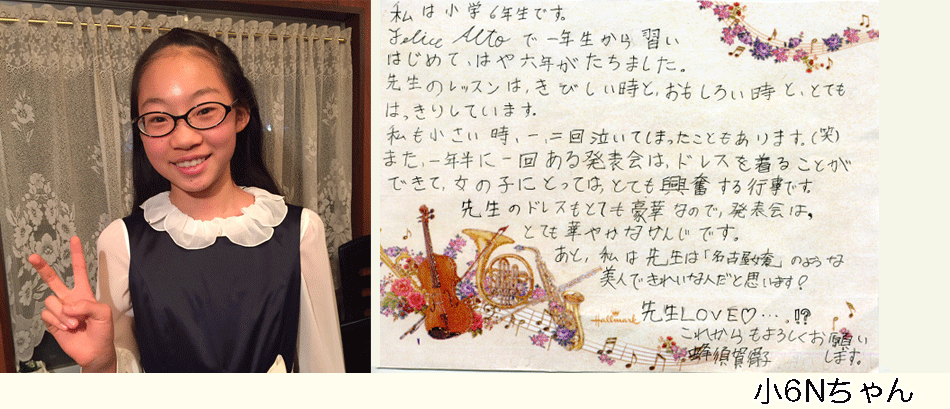 私は小学6年生です。
Felice Altoで一年生から習い
はじめて、はや六年がたちました。
先生のレッスンは、きびしい時と、おもしろい時と、とても
はっきりしています。
私も小さい時、一、二回泣いてしまったこともあります。(笑)
また、一年半に一回ある発表会は、ドレスを着ることが
できて、女の子にとっては、とても興奮する行事です。
先生のドレスもとても豪華なので、発表会は、
とても華やかなかんじです。
あと、私は先生は「名古屋」のような
美人できれいな人だと思います?
先生LOVE♡…,!?
これからもよろしくお願い
します。
Hallmark
小6Nちゃん